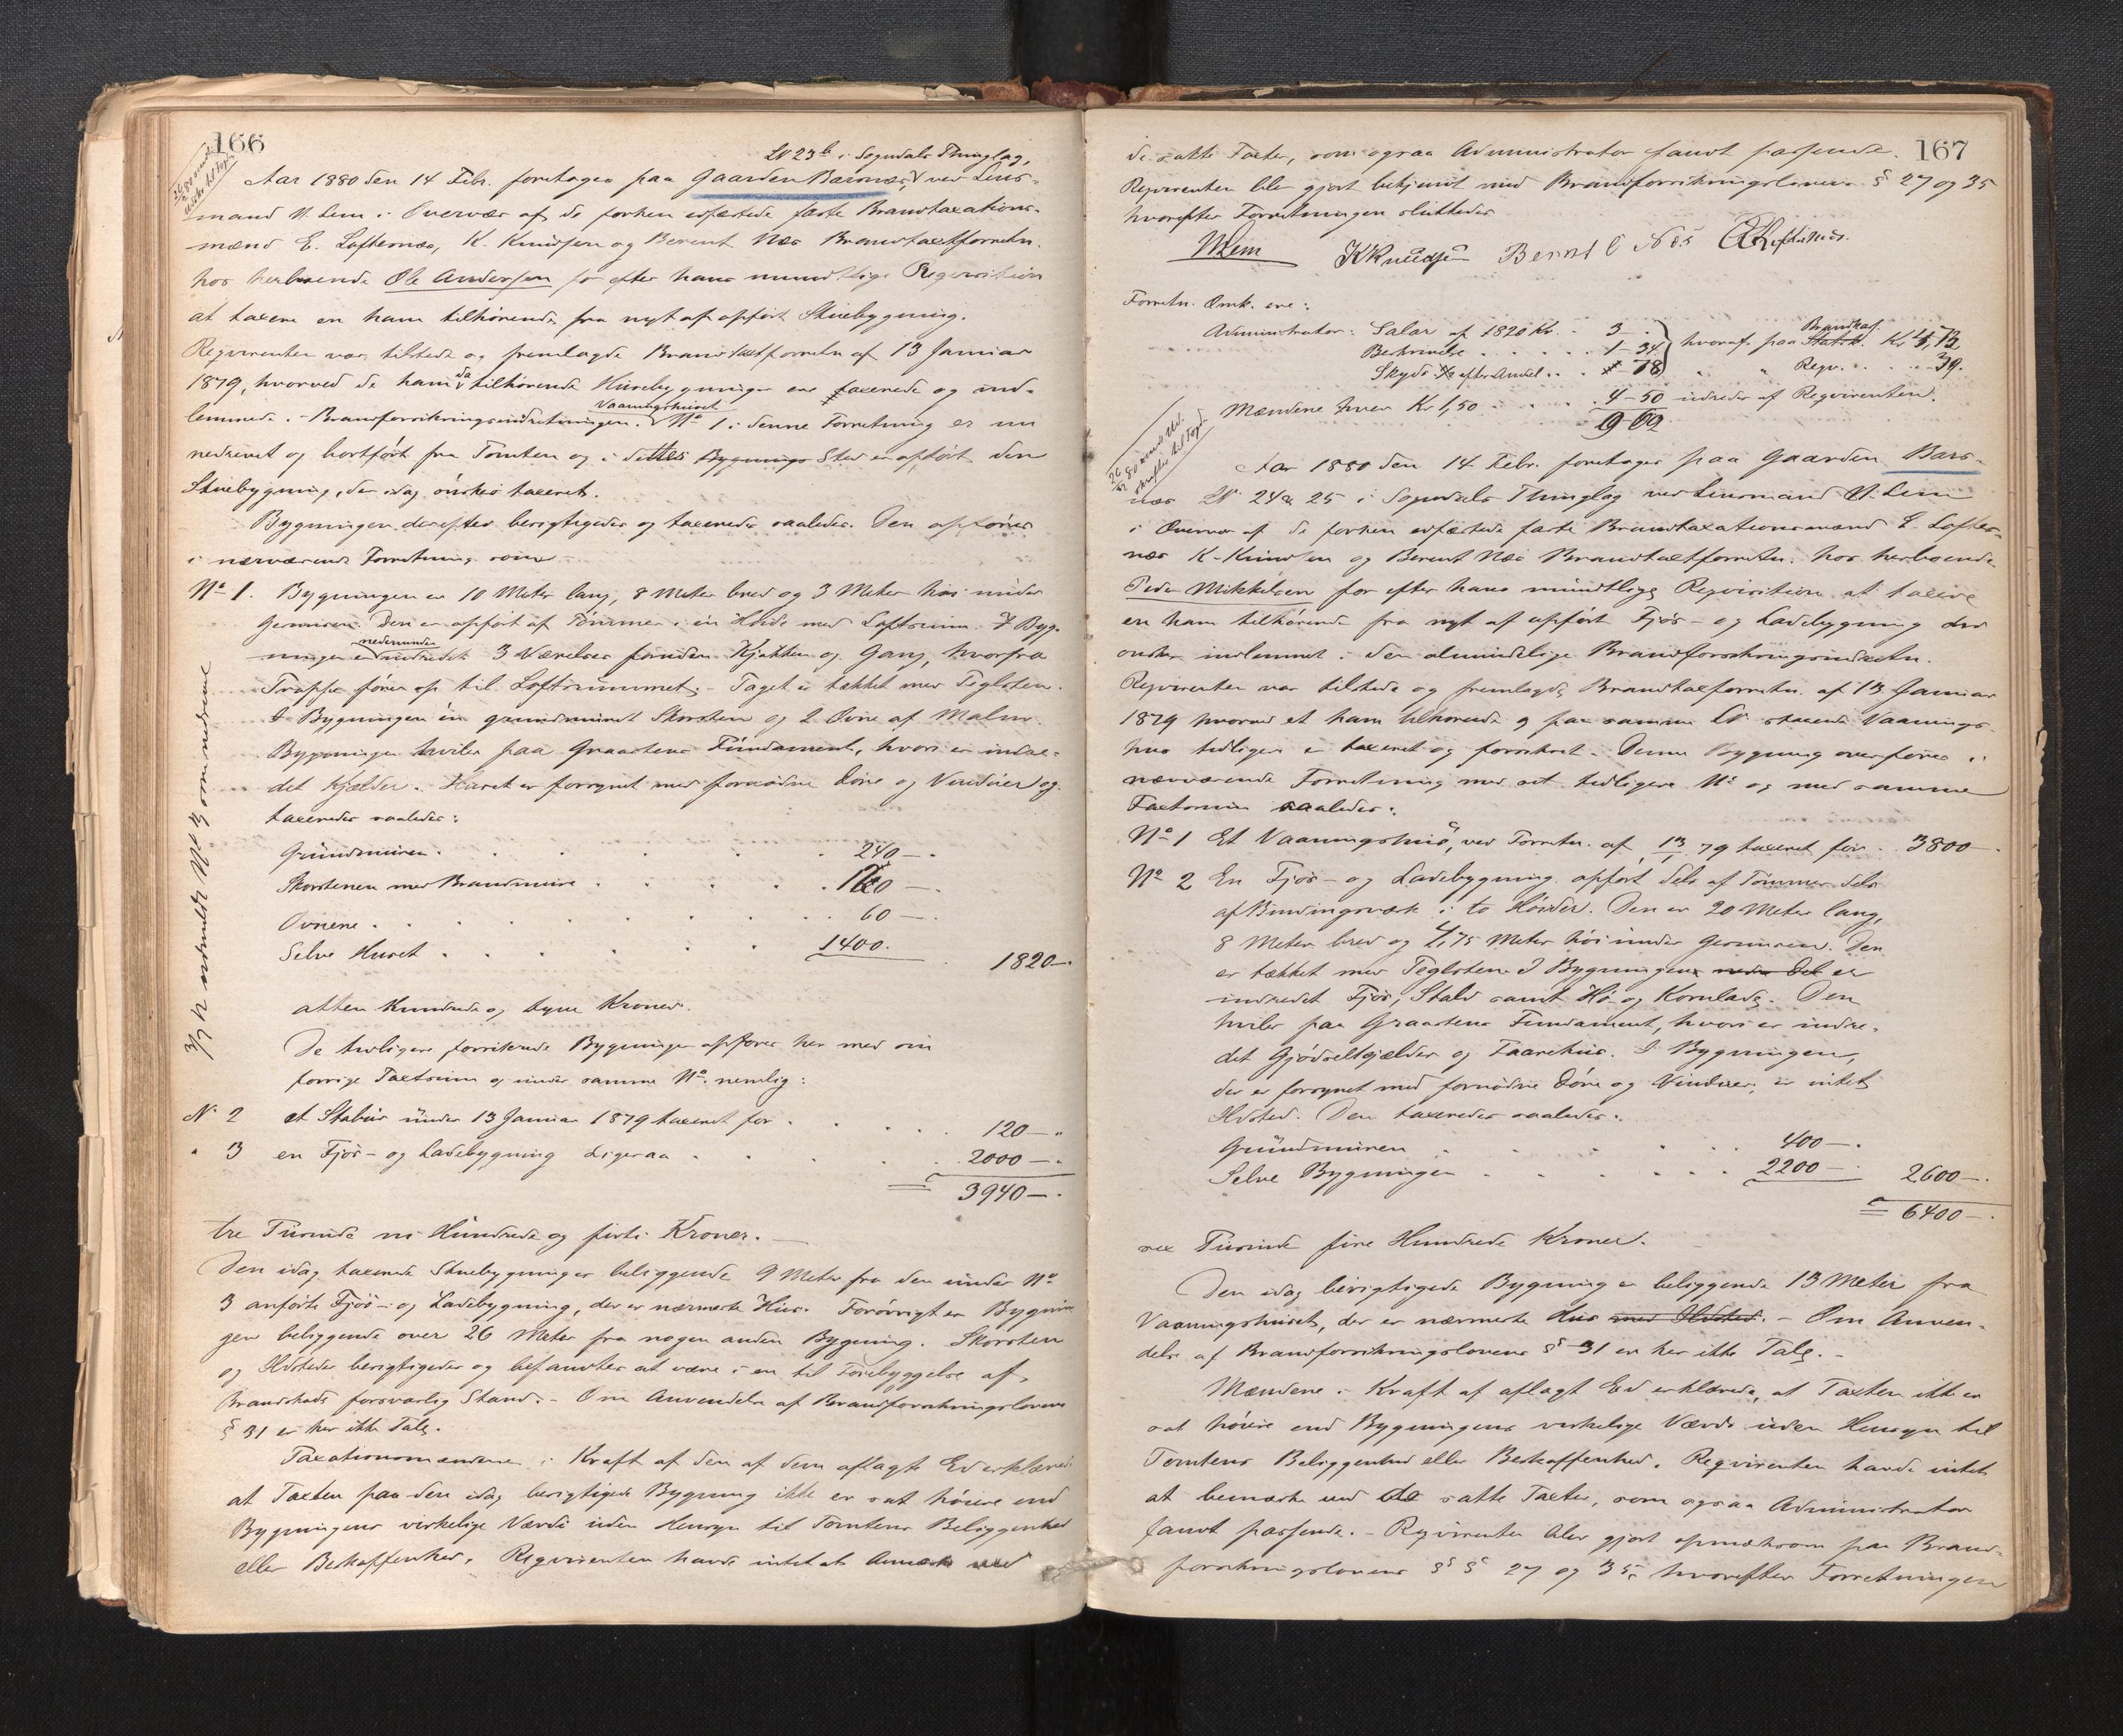 166
LN 23b i Sogndals Thinglag,
Aar 1880 den 14 Febr. foretoges paa Gaarden Barsnes, ved Lens-
mand N. Lem i Overvær af de forhen edfæstede faste Brandtaxations-
mænd E. Loftesnæs, K. Knudsen og Berent Næs Brandtaxtforretn.
hos herboende Ole Andersen for efter hans mundtlige Reqvisition
at taxere en ham tilhørende fra nyt af opført Stuebygning.
Reqvirenten var tilstede og fremlagde Brandtaxtforretn. af 13 Januar
1879, hvorved de ham da tilhørende Huusbygninger ere taxerede og ind-
lemmede i Brandforsikringsindretningen. Vaaningshuset No 1 i denne Forretning er nu
nedrevet og bortført fra Tomten og i dettes Bygnings Sted er opført den
Stuebygning, der idag ønskes taxeret.
Bygningen derefter besigtigedes og taxeredes saaledes. Den opføres
i nærværende Forretning som
No 1. Bygningen er 10 Meter lang, 8 Meter bred og 3 Meter høi under
Gesimsen. Den er opført af Tømmer i en Høide med Loftsrum. I Byg-
ningen er nedenunder indredet 3 Værelser foruden Kjøkken og Gang, hvorfra
Trappe fører op til Loftsrummet. Taget er tækket med Teglsten.
I Bygningen én grundmuret Skorsten og 2 Ovne af Malm.
Bygningen hviler paa Graastens Fundament, hvori er indre-
det Kjælder. Huset er forsynet med fornødne Døre og Vinduer og
taxeredes saaledes:
Grundmuren 240 —
Skorstenen med Brandmure 120 —
Ovnene 60 —
Selve Huset 1400. 1820 —
atten Hundrede og tyve Kroner.
De tidligere forsikrede Bygninger opføres her med sin
forrige Taxtsum og under samme No. nemlig:
No 2 et Stabur under 13 Januar 1879 taxeret for 120 —
" 3 en Fjøs- og Ladebygning Ligesaa 2000 —
3940 —
tre Tusinde ni Hundrede og firti Kroner. —
Den idag taxerede Stuebygning er beliggende 9 Meter fra den under No
3 anførte Fjøs- og Ladebygning, der er nærmeste Hus. Forøvrigt er Bygnin
gen beliggende over 26 Meter fra nogen anden Bygning. Skorsten
og Ildsteder besigtigedes og befandtes at være i en til Forebyggelse af
Brandskade forsvarlig Stand. - Om Anvendelse af Brandforsikringslovens
§ 31 er her ikke Tale.
Taxationsmændene i Kraft af den af dem aflagte Ed erklærede
at Taxten paa den idag besigtigede Bygning ikke er sat høiere end
Bygningens virkelige Værdi uden Hensyn til Tomtens Beliggenhed
eller Beskaffenhed. Reqvirenten havde intet at bemærke ved
167
de satte Taxter, som ogsaa Administrator fandt passende.
Reqvirenten blev gjort bekjendt med Brandforsikringslovens § 27 og 35
hvorefter Forretningen sluttedes
NLem KKnudsen Bernt O Næs E Loftesnæs.
Forretn. Omk. ere:
Administrator: Salar af 1820 Kr. 3 —
Beskrivelse 1 - 34
Skyds efter Andel 78
hvoraf paa Statsk. Brandkas. Kr 4,73
" " Reqv. 39.
Mændene hver Kr 1,50 4 - 50 udredes af Reqvirenten.
9 62
Aar 1880 den 14 Febr. foretoges paa Gaarden Bars-
næs LN. 24 & 25 i Sogndals Thinglag ved Lensmand N. Lem
i Overvær af de forhen edfæstede faste Brandtaxationsmænd E. Loftes-
næs K. Knudsen og Berent Næs Brandtaxtforretn. hos herboende
Peder Mikkelsen for efter hans mundtlige Reqvisition at taxere
en ham tilhørende fra nyt af opført Fjøs- og Ladebygning der
ønskes indlemmet i den almindelige Brandforsikringsindretn.
Reqvirenten var tilstede og fremlagde Brandtaxtforretn. af 13 Januar
1879 hvorved et ham tilhørende og paa samme LN staaende Vaanings-
hus tidligere er taxeret og forsikret. Denne Bygning overføres i
nærværende Forretning med sit tidligere No og med samme
Taxtsum saaledes:
No 1 Et Vaaningshus, ved Forretn. af 13/1 79 taxeret for 3800 —
No 2 En Fjøs- og Ladebygning opført dels af Tømmer dels
af Bindingsværk i to Høider. Den er 20 Meter lang,
8 Meter bred og 4,75 Meter høi under Gesimsen. Den
er tækket med Teglsten. I Bygningens nedre Del er
indredet Fjøs, Stald samt Hø- og Kornlade. Den
hviler paa Graastens Fundament, hvori er indre-
det Gjødselkjælder og Faarehus. I Bygningen,
der er forsynet med fornødne Døre og Vinduer, er intet
Ildsted. Den taxeredes saaledes:
Grundmuren 400 —
Selve Bygningen 2200 — 2600 —
6400 —
sex Tusinde fire Hundrede Kroner.
Den idag besigtigede Bygning er beliggende 13 Meter fra
Vaaningshuset, der er nærmeste Hus med Ildsted. - Om Anven-
delse af Brandforsikringslovens § 31 er her ikke Tale.
Mændene i Kraft af aflagt Ed erklærede, at Taxten ikke er
sat høiere end Bygningens virkelige Værdi uden Hensyn til
Tomtens Beliggenhed eller Beskaffenhed. Reqvirenten havde intet
at bemærke ved de satte Taxter, som ogsaa Administrator
fandt passende. - Reqvirenten blev gjort opmærksom paa Brand-
forsikringslovens §§ 27 og 35, hvorefter Forretningen